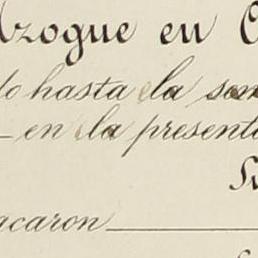 Azogue en
do hasta la
en la present
acaron